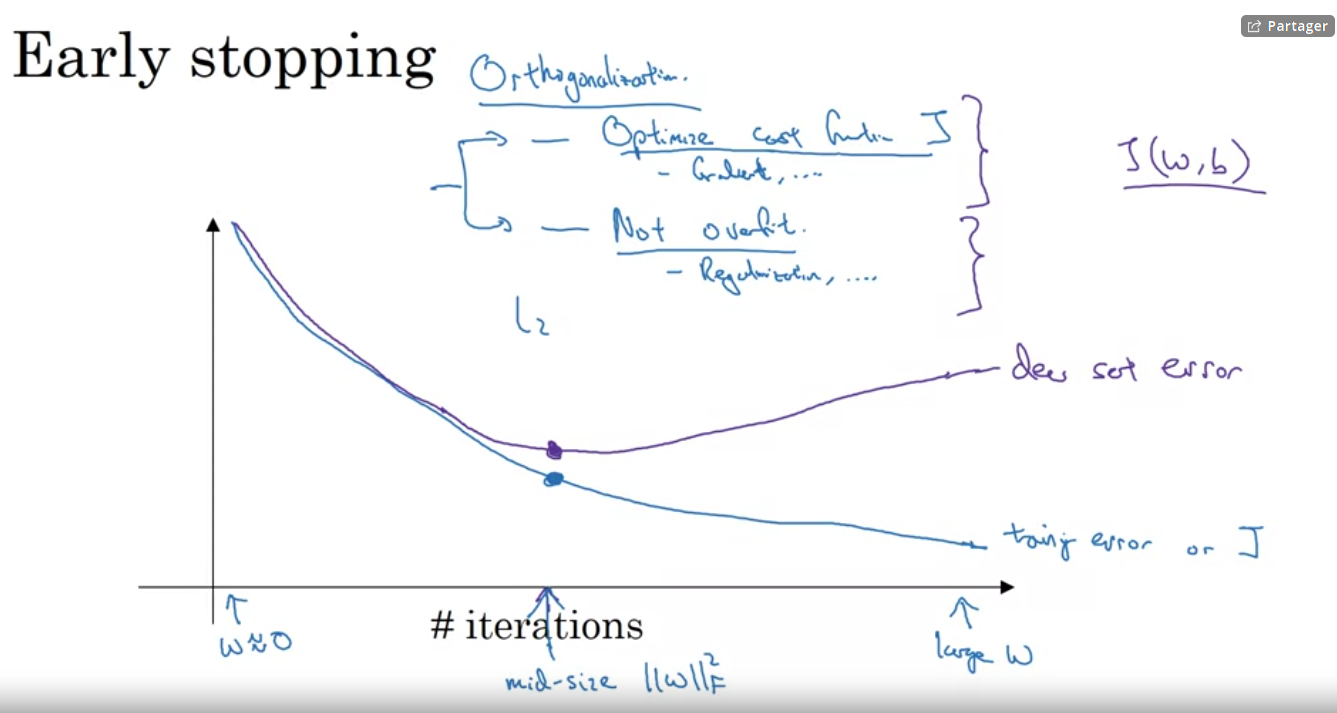 Partager
Early stopping
Orthogonalization.
— Optimize cost function J
- Gradient, ....
J(w,b)
— Not overfit.
- Regularization, ....
L2
dev set error
training error or J
# iterations
w≈0
mid-size ||w||²_F
large w